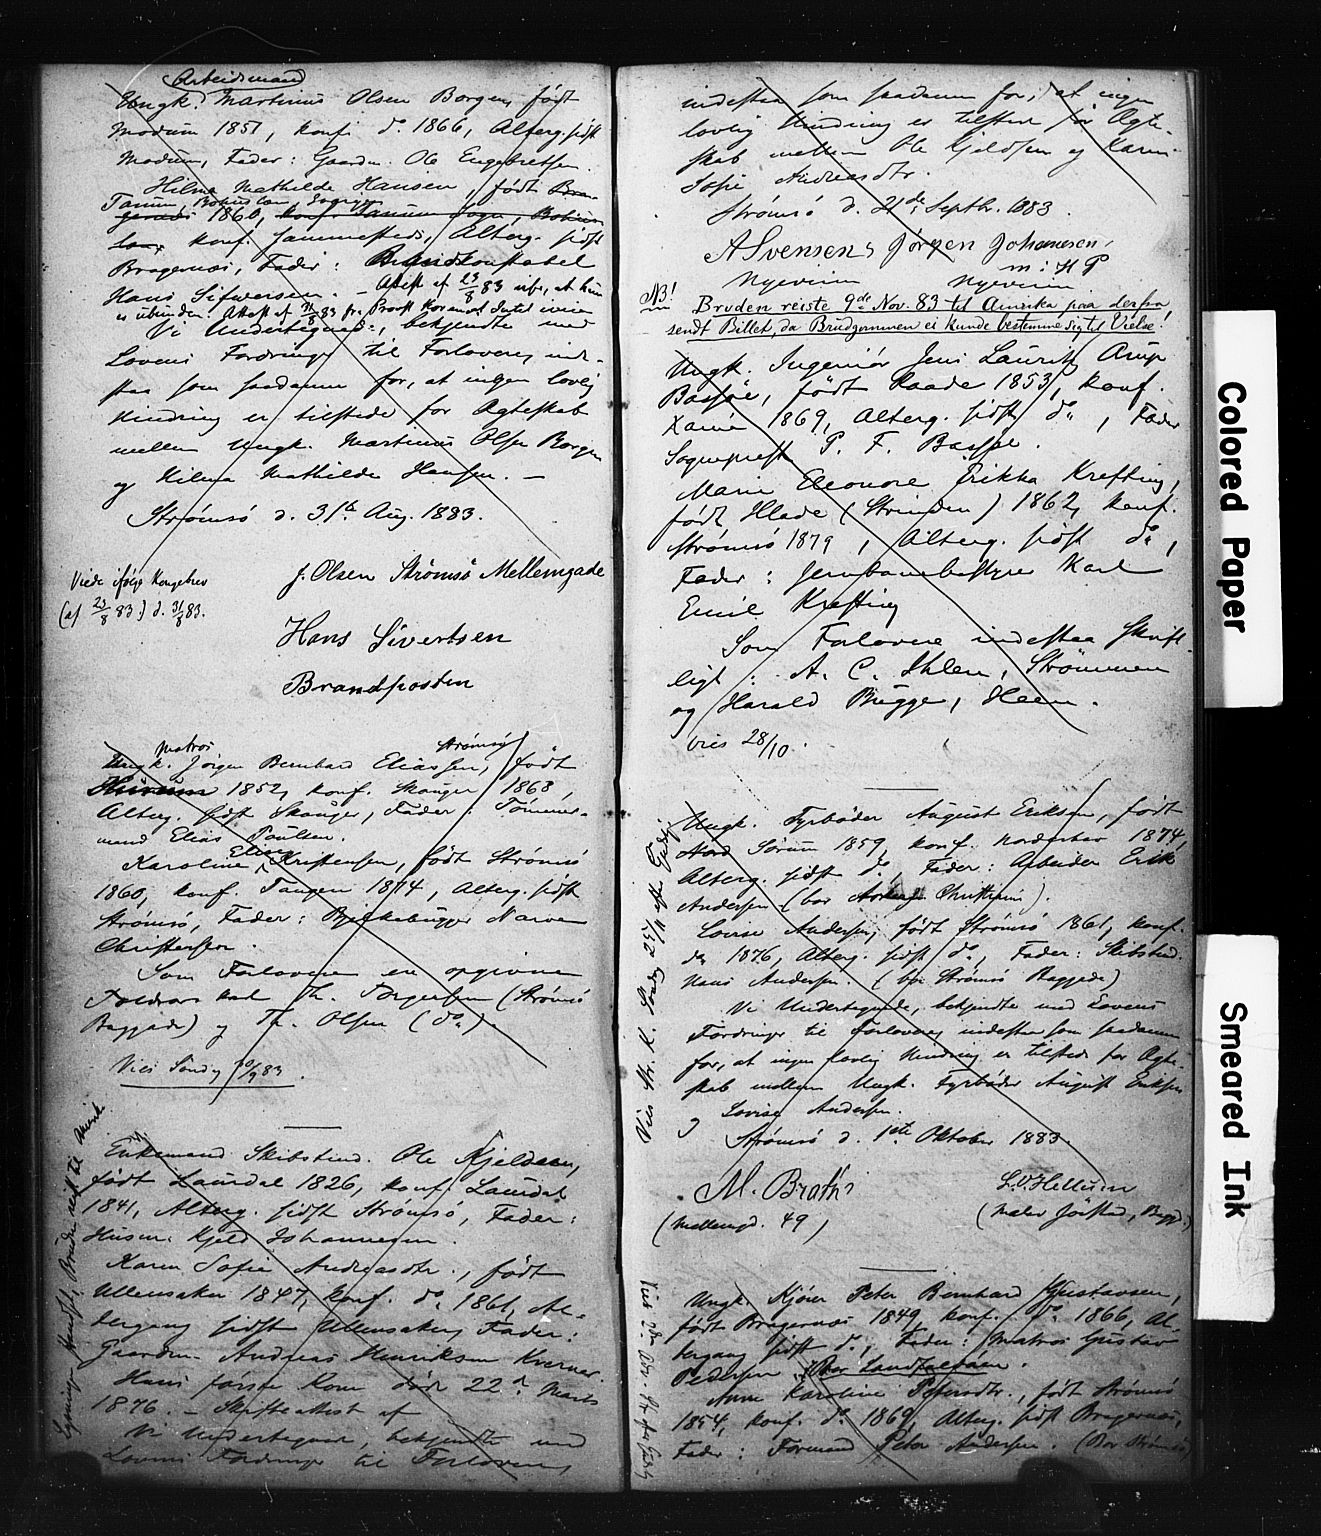 Arbeidsmand
Ungk. Martinus Olsen Borgen, født
Modum 1851, konf. do. 1866, Alterg. sidst
Modum, Fader: Gaardm. Ole Engebretsen
Hilma Mathilde Hansen, født Bra-
Tanum, Bohuslen,
gernæs 1860, konf. Tanum Sogn, Bohus-
len, konf. sammesteds, Alterg. sidst
Bragernæs, Fader: Brandkonstabel
Hans Sifwersen. - Attest af 23/8 83 udv., at hun
er ubunden. Attest af 31/8 83 fr. Provst
Vi Undertegnede, bekjendte med
Lovens Fordringer til Forlovere, inde-
staa som saadanne for, at ingen lovlig
Hindring er tilstede for Ægteskab
mellem Ungk. Martinus Olsen Borgen
og Hilma Mathilde Hansen. -
Strømsø d. 31te Aug. 1883.
Viede ifølge Kongebrev
(af 23/8 83.) d. 31/8 83.
J. Olsen Strømsø Mellemgade
Hans Sivertsen
Brandposten
Matros Strømsø
Ungk. Jørgen Bernhard Eliassen, født
Hurum 1852, konf. Skauger 1868,
Alterg. sidst Skauger, Fader: Tømmer-
mand Elias Paulsen.
Eline
Karoline Kristensen, født Strømsø
1860, konf. Tangen 1874, Alterg. sidst
Strømsø, Fader: Bjelkehugger Narve
Christensen.
Som Forlovere ere opgivne
Th. Torgersen (Strømsø
Baggade) og Th. Olsen (do.).
Viet Søndag 30/9 83.
Enkemand Skibstmd. Ole Kjeldsen,
født Laurdal 1826, konf. Laurdal
1841, Alterg. sidst Strømsø, Fader:
Husm. Kjeld Johannesen.
Karen Sofie Andreasdtr., født
Ullensaker 1847, konf. do. 1861, Al-
tergang sidst Ullensaker, Fader:
Gaardm. Andreas Henriksen Kverner.
Hans første Kone døde 22d. Marts
1876. - Skifteattest af
Vi Undertegnede, bekjendte med
Lovens Fordringer til Forlovere,
indestaa som saadanne for, at ingen
lovlig Hindring er tilstede for Ægte-
skab mellem Ole Kjeldsen og Karen
Sofie Andreasdtr.
Strømsø d. 21de Septbr. 1883.
A Svensen, Jørgen Johanesen,
Nyeveien m: H P
Nyeveien
NB! Bruden reiste 9de Nov. 83 til Amerika paa derfra
sendt Billet, da Brudgommen ei kunde bestemme sig til Vielse.
Ungk. Ingeniør Jens Lauritz Arup
Bassøe, født Raade 1853, konf.
Xania 1869, Alterg. sidst do., Fader
Sogneprest P. F. Bassøe.
Marie Eleonore Erikka Krefting,
født Hlade (Strinden) 1862, konf.
Strømsø 1879, Alterg. sidst do.,
Fader: Jernbanebestyrer Karl
Emil Krefting
Som Forlovere indestaa skrift-
ligt: A. C. Ihlen, Strømmen
og Harald Bugge, Heen.
Viet 28/10.
Ungk. Fyrbøder August Eriksen, født
Nord Sørum 1859, konf. Norderhov 1874,
Alterg. sidst do., Fader: Arbeider Erik
Andersen (bor Christiania).
Lovise Andersen, født Strømsø 1861, konf.
do. 1876, Alterg. sidst do., Fader: Skibstmd.
Hans Andersen. (bor Strømsø Baggade)
Vi Undertegnede, bekjendte med Lovens
Fordringer til Forlovere, indestaa som saadanne
for, at ingen lovlig Hindring er tilstede for Ægte-
skab mellem Ungk. Fyrbøder August Eriksen
og Lovise Andersen.
Strømsø d. 1ste Oktober 1883.
M. Brathn L. O. Hellum
(Mellemgd. 49) (Maler Jørstad, Baggd.)
Ungk. Kjører Peter Bernhard Gustavsen,
født Bragernæs 1849, konf. do. 1866, Al-
tergang sidst do., Fader: Matros Gustav
Pedersen. Bor Landfaløen.
Anne Karoline Petersdtr., født Strømsø
1854, konf. do. 1869, Alterg. sidst Bragernæs,
Fader: Formand Peter Andersen. (Bor Strømsø)
Colored Paper
Smeared Ink